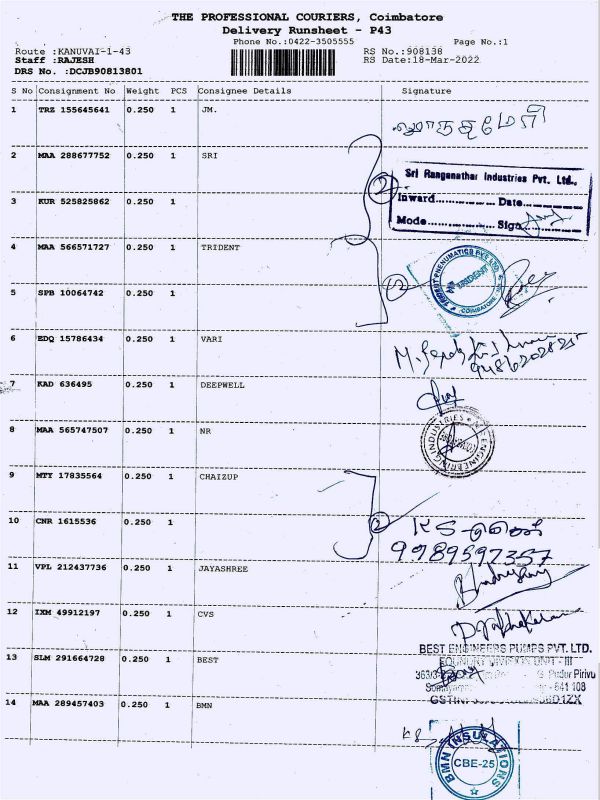 THE PROFESSIONAL COURIERS, Coimbatore
Delivery Runsheet - P43
Phone No.:0422-3505555 Page No.:1
Route :KANUVAI-1-43 RS No.:908138
Staff :RAJESH RS Date:18-Mar-2022
DRS No. :DCJB90813801
S No Consignment No Weight PCS Consignee Details Signature
1 TRZ 155645641 0.250 1 JM.
2 MAA 288677752 0.250 1 SRI
Sri Ranganathar Industries Pvt. Ltd.,
Inward Date
3 KUR 525825862 0.250 1
Mode Sign
4 MAA 566571727 0.250 1 TRIDENT
TRIDENT PNEUMATICS PVT LTD
COIMBATORE
5 SPB 10064742 0.250 1
6 EDQ 15786434 0.250 1 VARI
7 KAD 636495 0.250 1 DEEPWELL
8 MAA 565747507 0.250 1 NR
9 MTY 17835564 0.250 1 CHAIZUP
10 CNR 1615536 0.250 1
9989597357
11 VPL 212437736 0.250 1 JAYASHREE
12 IXM 49912197 0.250 1 CVS
BEST ENGINEERS PUMPS PVT. LTD.
13 SLM 291664728 0.250 1 BEST
FOUNDRY DIVISION UNIT - III
Pudur Pirivu
641 108
14 MAA 289457403 0.250 1 BMN
BMN INSULATIONS
CBE-25